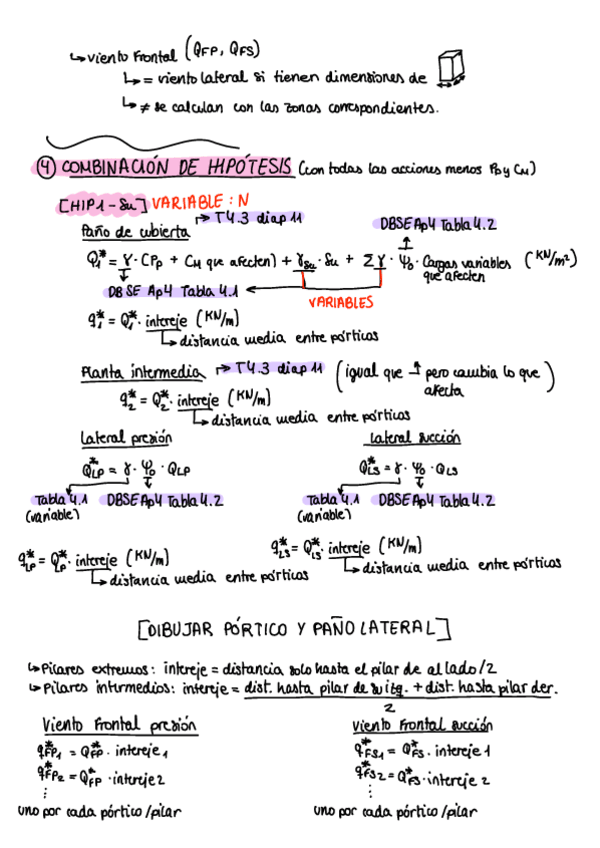 ↳ viento Frontal (QFP, QFS)
↳ = viento lateral si tienen dimensiones de
↳ ≠ se calculan con las zonas correspondientes.
④ COMBINACIÓN DE HIPÓTESIS (con todas las acciones menos Pp y CM)
[HIP1-Su] VARIABLE: N
Paño de cubierta ↳ T4.3 diap 11
DBSE Ap4 Tabla 4.2
Q₁* = γ · (Pp + CM que afecten) + γSu · Su + Σ γ · Ψ₀ · Cargas variables que afecten (KN/m²)
DBSE Ap4 Tabla 4.1
VARIABLES
q₁* = Q₁* · intereje (KN/m)
↳ distancia media entre pórticos
Planta intermedia → T4.3 diap 11 (igual que ↑ pero cambia lo que afecta)
q₂* = Q₂* · intereje (KN/m)
↳ distancia media entre pórticos
Lateral presión
QLP* = γ · Ψ₀ · QLP
Tabla 4.1 DBSE Ap4 Tabla 4.2
(variable)
qLP* = QLP* · intereje (KN/m)
↳ distancia media entre pórticos
Lateral succión
QLS* = γ · Ψ₀ · QLS
Tabla 4.1 DBSE Ap4 Tabla 4.2
(variable)
qLS* = QLS* · intereje (KN/m)
↳ distancia media entre pórticos
[DIBUJAR PÓRTICO Y PAÑO LATERAL]
↳ Pilares extremos: intereje = distancia solo hasta el pilar de al lado/2
↳ Pilares intermedios: intereje = dist. hasta pilar de su izq. + dist. hasta pilar der.
2
Viento Frontal presión
qFP₁* = QFP* · intereje 1
qFP₂* = QFP* · intereje 2
⋮
uno por cada pórtico/pilar
Viento Frontal succión
qFS₁* = QFS* · intereje 1
qFS₂* = QFS* · intereje 2
⋮
uno por cada pórtico/pilar